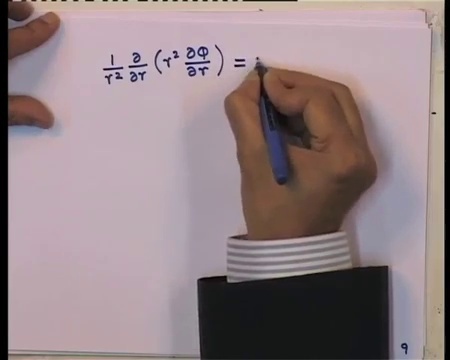 1/r² ∂/∂r (r² ∂Φ/∂r) =
9